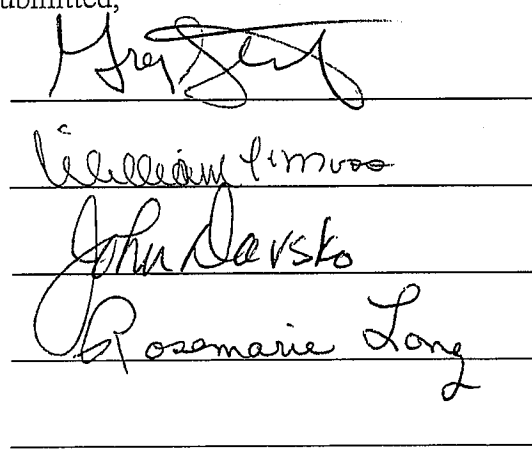 submitted,
Greg
William
John Davsko
Rosemarie Long